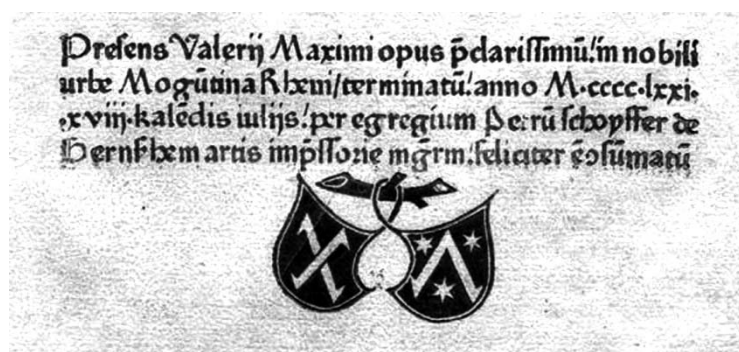 Presens Valerij Maximi opus p̄clarissimū! in nobili
urbe Mogūtina Rheni/terminatū! anno M·cccc·lxxi.
·xviij·kalēdis iulijs! per egregium Petrū schoyffer de
Gernsshem artis imp̄ssorie mḡrm! feliciter ēↄsūmatū